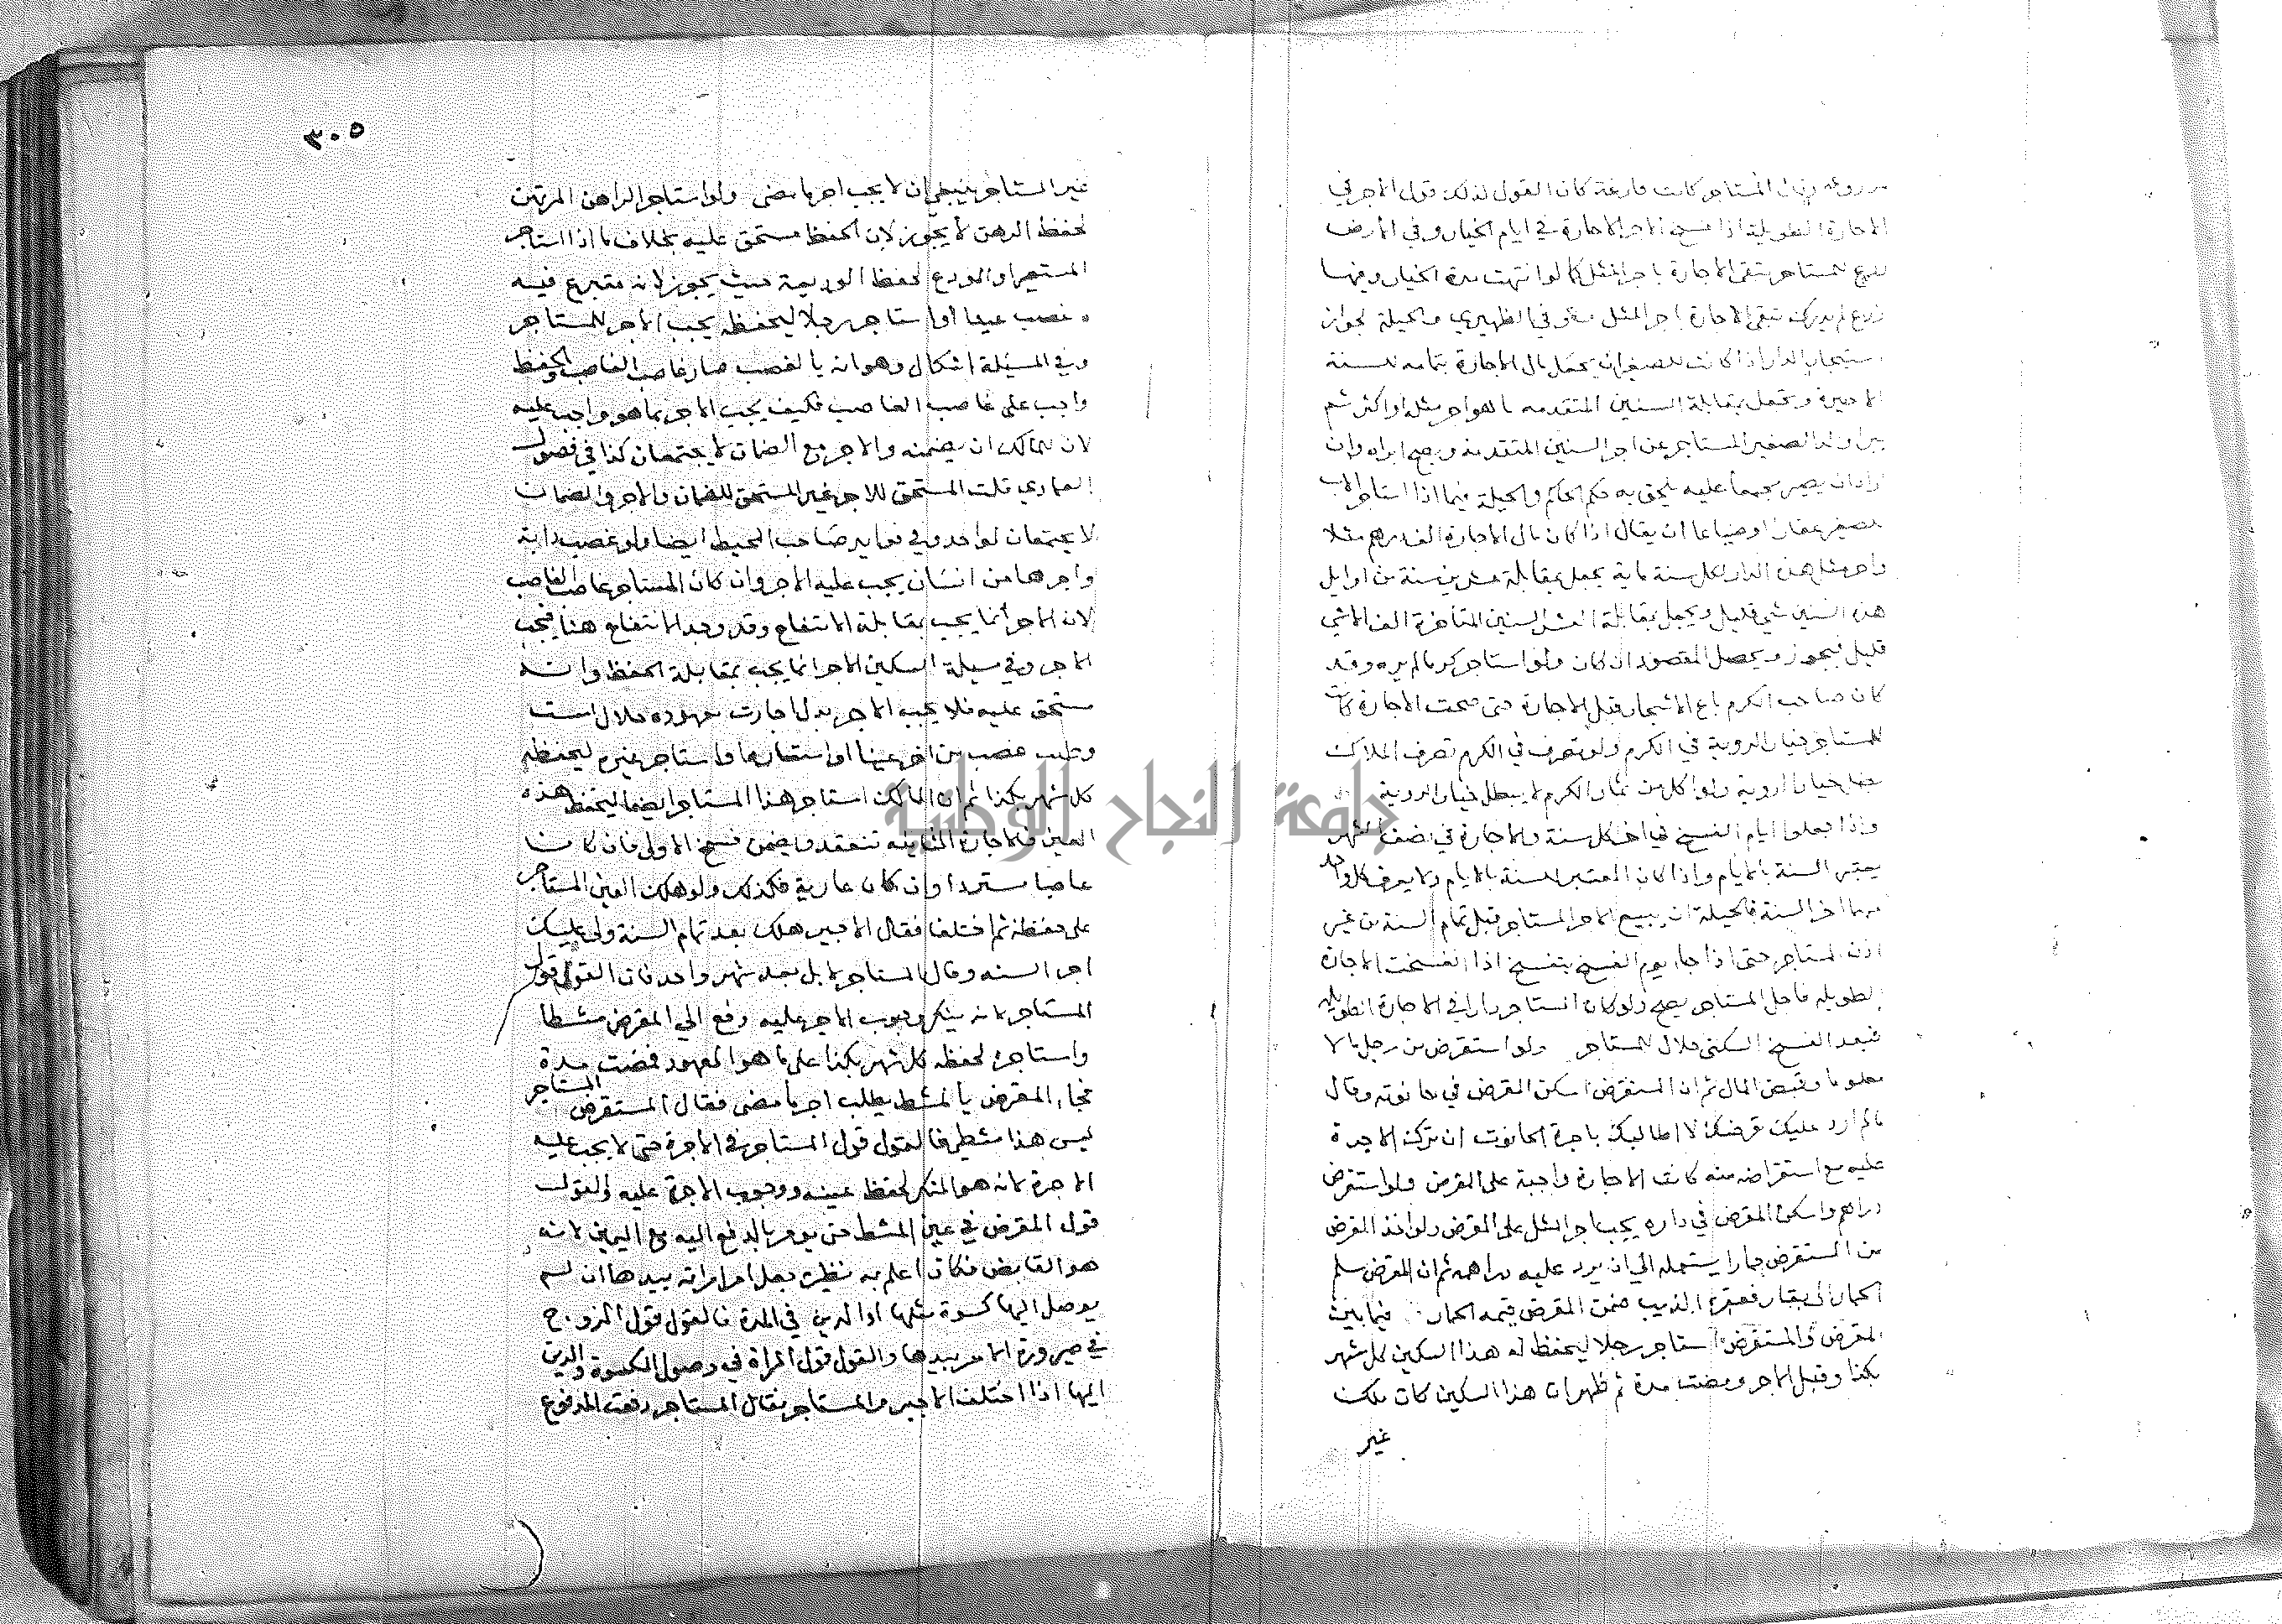 كانت فارغة كان القول لذلك قول الاجر في
الاجارة الطويلة اذا فسخ الاجر الاجارة في ايام الخيار وفي الارض
للمستاجر تبقى الاجارة باجر المثل كما لو انتهت مدة الخيار وفيها
زرع لم يدرك تبقى الاجارة باجر المثل وفي الظهيري والحيلة لجواز
استيجار الدار اذا كانت للصغير ان يجعل مال الاجارة بتمامه للسنة
الاخيرة ويجعل بمقابلة السنين المتقدمه ما هو اجر مثله او اكثر ثم
يبرا ولد الصغير المستاجر عن اجر السنين المتقدمة ويصح ابراه وان
اراد ان يصير مجمعا عليه يلحق به حكم الحاكم والحيلة فيما اذا استاجر الاب
للصغير عقارا او ضياعا ان يقال اذا كان مال الاجارة الف درهم مثلا
واجر مثل هذه الدار لكل سنة ماية يجعل بمقابلة عشرين سنة من اوايل
هذه السنين شي قليل ويجعل بمقابلة العشر السنين المتاخرة الف الا شي
قليل فيجوز ويحصل المقصود ان كان ولو استاجر كرما لم يره وقد
كان صاحب الكرم باع الاشجار قبل الاجارة حتى صحت الاجارة كان
للمستاجر خيار الروية في الكرم ولو تصرف في الكرم تصرف الملاك
بطل خيار الروية ولو اكل من ثمار الكرم لا يبطل خيار الروية
واذا جعلوا ايام الفسخ في اخر كل سنة والاجارة في نصف الشهر
يعتبر السنة بالايام واذا كان المعتبر للسنة بالايام ولا يعرف كل واحد
منهما اخر السنة فالحيلة ان يبيع الاجر المستاجر قبل تمام السنة من غير
اذن المستاجر حتى اذا جاء يوم الفسخ ينفسخ اذا انفسخت الاجارة
الطويله فاحل المستاجر يصح ولو كان المستاجر دارا في الاجارة الطويله
فبعد الفسخ السكنى حلال للمستاجر ولو استقرض من رجل مالا
معلوما وقبض المال ثم ان المستقرض اسكن المقرض في حانوته وقال
ما لم ارد عليك قرضك لا اطالبك باجرة الحانوت ان ترك الاجرة
عليه مع استقراضه منه كانت الاجارة واجبة على المقرض ولو استقرض
دراهم واسكن المقرض في داره يجب اجر المثل على المقرض ولو اخذ المقرض
من المستقرض حمارا يستعمله الى ان يرد عليه دراهمه ثم ان المقرض سلم
الحمار الى بقار فعقره الذيب ضمن المقرض قيمه الحمار فيما بين
المقرض والمستقرض استاجر رجلا ليحفظ له هذا السكين كل شهر
بكذا وقبل الاجر ومضت مدة ثم ظهر ان هذا السكين كان ملك
غير
٣٠٥
غير المستاجر ينبغي ان لا يجب اجر ما مضى ولو استاجر الراهن المرتهن
لحفظ الرهن لا يجوز لان الحفظ مستحق عليه بخلاف ما اذا استاجر
المستعير او المودع لحفظ الوديعة حيث يجوز لانه متبرع فيه
غصب عبدا او استاجر رجلا ليحفظه يجب الاجر للمستاجر
وفي المسئلة اشكال وهو انه بالغصب صار غاصب الغاصب والحفظ
واجب على غاصب الغاصب فكيف يجب الاجر بما هو واجب عليه
لان للمالك ان يضمنه والاجر مع الضمان لا يجتمعان كذا في فصول
العمادي قلت المستحق للاجر غير المستحق للضمان والاجر والضمان
لا يجتمعان لواحد وفي فوايد صاحب المحيط ايضا ولو غصب دابة
واجرها من انسان يجب عليه الاجر وان كان المستاجر غاصب الغاصب
لان الاجر انما يجب بمقابلة الانتفاع وقد وجد الانتفاع هنا فيجب
الاجر وفي مسيلة السكين الاجر انما يجب بمقابلة الحفظ وانه
مستحق عليه فلا يجب الاجر
غصب من اخر عينا او استعارها واستاجر غيره ليحفظه
كل شهر بكذا ثم ان المالك استاجر هذا المستاجر ايضا ليحفظ هذه
العين فالاجارة الثانيه تنعقد ويضمن فسخ الاولى فان كان
غاصبا مستردا وان كان عارية فكذلك ولو هلك العين المستاجر
على حفظه ثم اختلفا فقال الاجير هلك بعد تمام السنة ولي عليك
اجر السنه وقال المستاجر لا بل بعد شهر واحد فان القول قول
المستاجر لانه ينكر وجوب الاجر عليه دفع الي المقرض مشطا
واستاجره لحفظه كل شهر بكذا على ما هو المعهود فمضت مدة
فجاء المقرض بالمشط يطلب اجر ما مضى فقال المستقرض المستاجر
ليس هذا مشطي فالقول قول المستاجر في الاجرة حتى لا يجب عليه
الاجرة لانه هو المنكر لحفظ عينه ووجوب الاجرة عليه والقول
قول المقرض في عين المشط حتى يومر بالدفع اليه مع اليمين لانه
هو القابض فكان اعلم به نظيره جعل امر امراته بيدها ان لم
يوصل اليها كسوة مثلها او الدين في المدة فالقول قول الزوج
في صيرورة الامر بيدها والقول قول المراة في وصول الكسوة والدين
اليها اذا اختلف الاجير والمستاجر فقال المستاجر دفعت المدفوع
جامعة النجاح الوطنية